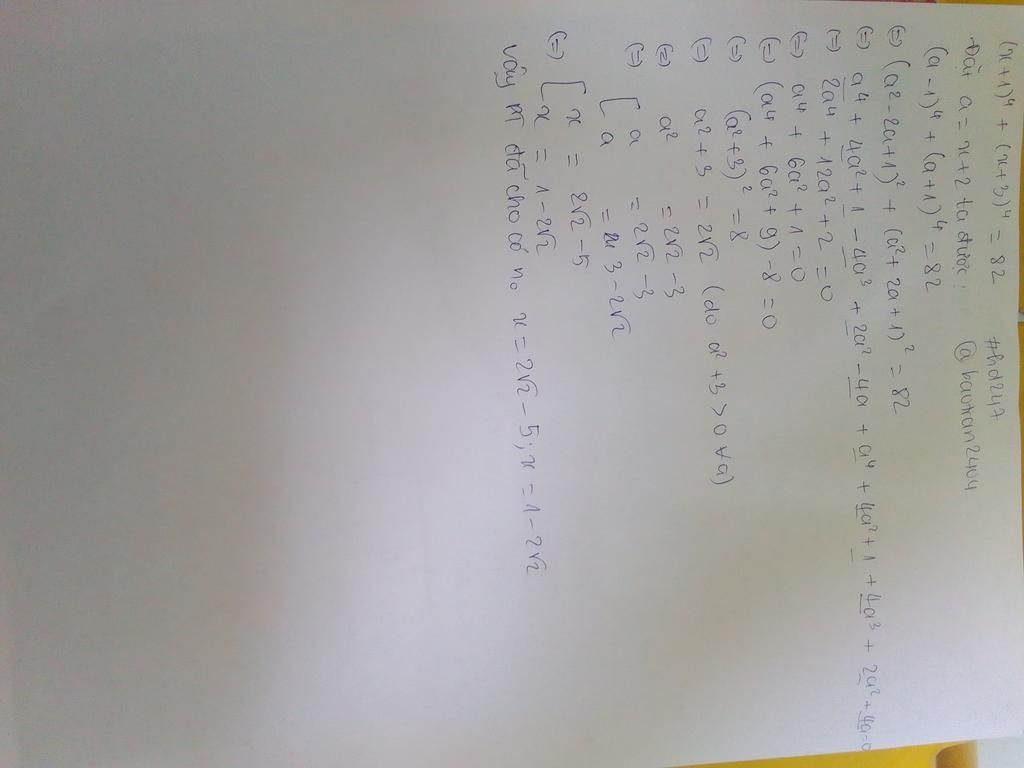 (x+1)⁴ + (x+3)⁴ = 82 #hd247
Đặt a = x+2 ta được: @baotran2404
(a-1)⁴ + (a+1)⁴ = 82
(=) (a²-2a+1)² + (a²+2a+1)² = 82
(=) a⁴ + 4a² + 1 - 4a³ + 2a² - 4a + a⁴ + 4a² + 1 + 4a³ + 2a² + 4a = 0
(=) 2a⁴ + 12a² + 2 = 0
(=) a⁴ + 6a² + 1 = 0
(=) (a⁴ + 6a² + 9) - 8 = 0
(=) (a²+3)² = 8
(=) a² + 3 = 2√2 (do a² + 3 > 0 ∀a)
(=) a² = 2√2 - 3
(=) [ a = 2√2 - 3
[ a = 3 - 2√2
(=) [ x = 2√2 - 5
[ x = 1 - 2√2
Vậy PT đã cho có n₀ x = 2√2 - 5; x = 1 - 2√2